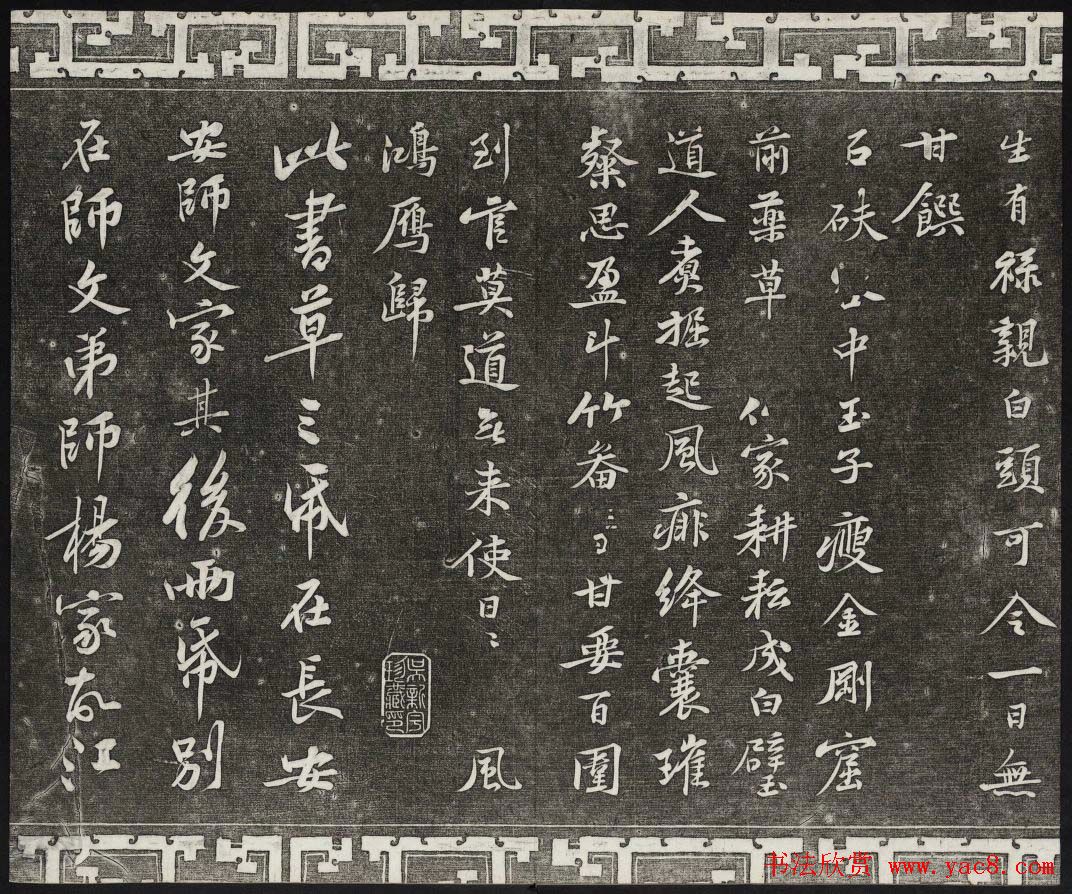 生有祿親白頭可令一日無
甘饌
石砆谷中玉子瘦金剛窟
前藥草 仙家耕耘成白璧
道人煑掘起風痱絳囊璀
粲思盈斗竹畚甘要百圍
到官莫道無来使日〻 風
鴻鴈歸
此書草三帋在長安
安師文家其後兩帋別
在師文弟師楊家故江
吳新宇珍藏印
书法欣赏 www.yac8.com